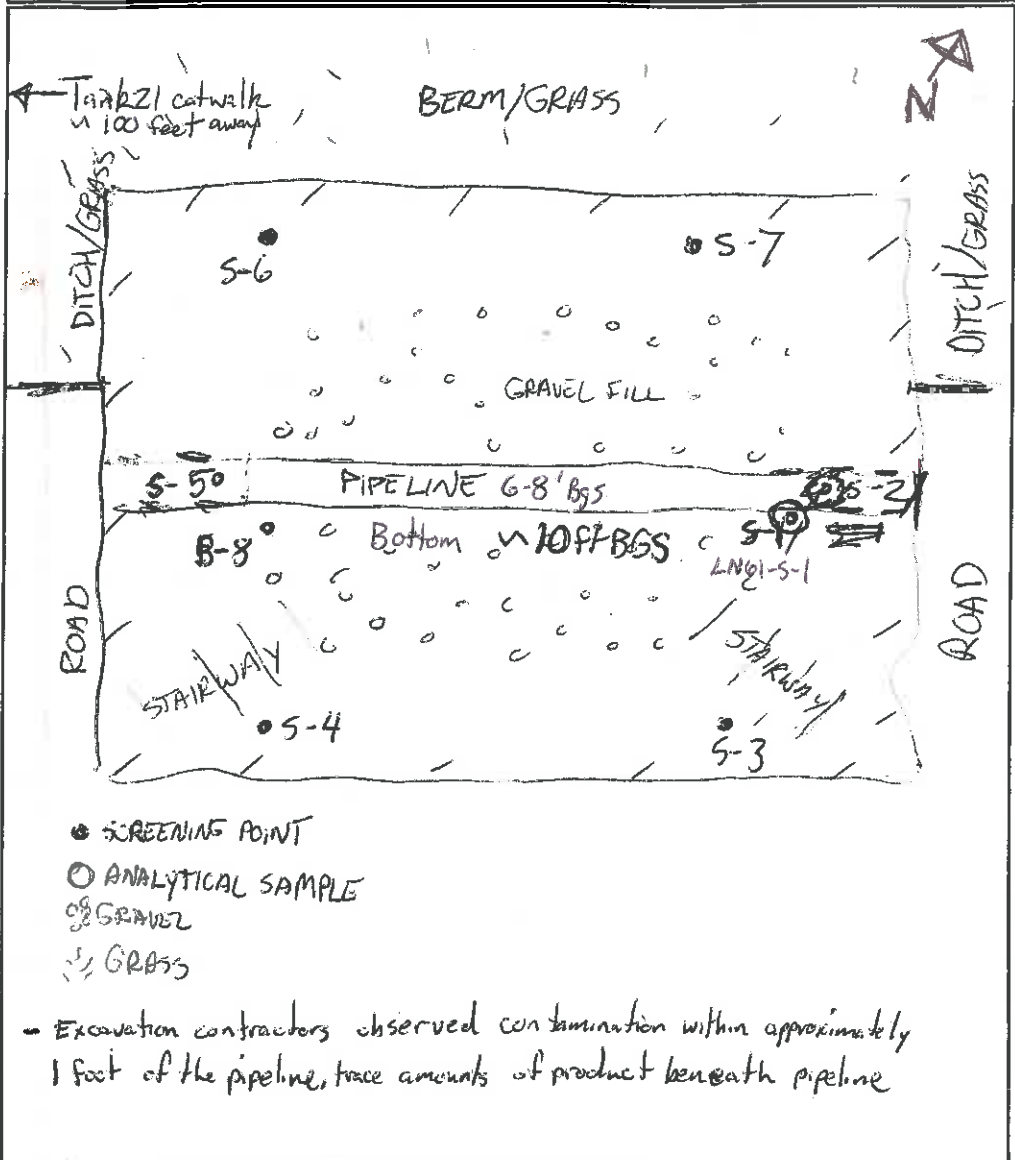 Tank 21 catwalk
~ 100 feet away
BERM/GRASS
N
DITCH/GRASS
DITCH/GRASS
S-6
S-7
GRAVEL FILL
S-5
PIPELINE 6-8' Bgs
S-2
S-8
Bottom ~10ft BGS
S-1
LN01-S-1
ROAD
ROAD
STAIRWAY
STAIRWAY
S-4
S-3
SCREENING POINT
ANALYTICAL SAMPLE
GRAVEL
GRASS
- Excavation contractors observed contamination within approximately
1 foot of the pipeline, trace amounts of product beneath pipeline